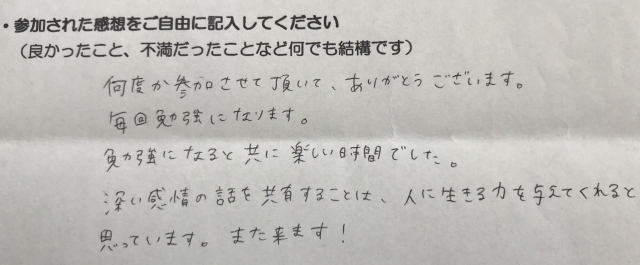 ・参加された感想をご自由に記入してください
（良かったこと、不満だったことなど何でも結構です）
何度か参加させて頂いて、ありがとうございます。
毎回勉強になります。
勉強になると共に楽しい時間でした。
深い感情の話を共有することは、人に生きる力を与えてくれると
思っています。また来ます！